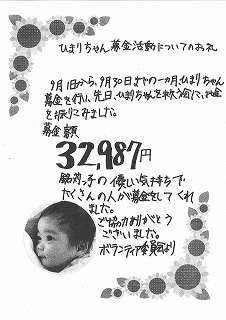 ひまりちゃん募金活動についてのお礼
9月1日から、9月30日までの一カ月、ひまりちゃん
募金を行い、先日、ひまりちゃんを救う会に、お金
を振りこみました。
募金額
32,987円
っ子の優しい気持ちで
たくさんの人が募金をしてくれ
ました。
ご協力ありがとう
ございました。
ボランティア委員会より